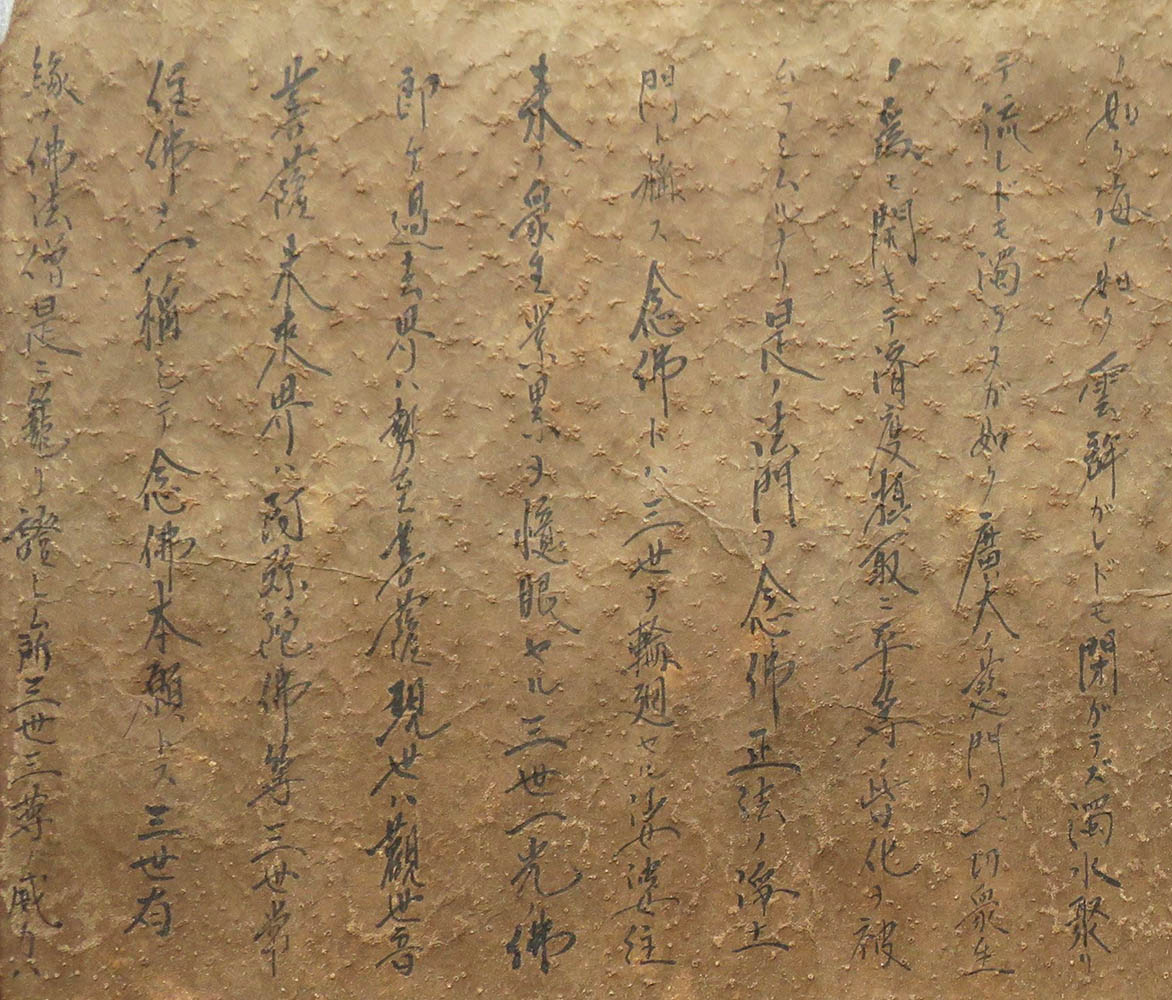 ノ如ク海ノ如ク雲群ガレドモ閉ガラズ濁水聚リ
テ流レドモ濁ラヌガ如ク廣大ノ慈門ヲ一切衆生
ノ爲ニ開キテ濟度攝取ニ平等ノ皆化ヲ被
ムラシムルナリ是ノ法門ヲ念佛正法ノ淨土
門ト稱ス念佛トハ三世ヲ輪廻セル娑婆往
来ノ衆生業累ヲ憶眼セル三世一光佛
即ケ過去界ハ勢至菩薩現世ハ觀世音
菩薩未来界ハ阿弥陀佛等三世常
住佛ヲ一稱シテ念佛本願トス三世有
緣ノ佛法僧是ニ籠リ證シム所三世三尊ノ威力ハ